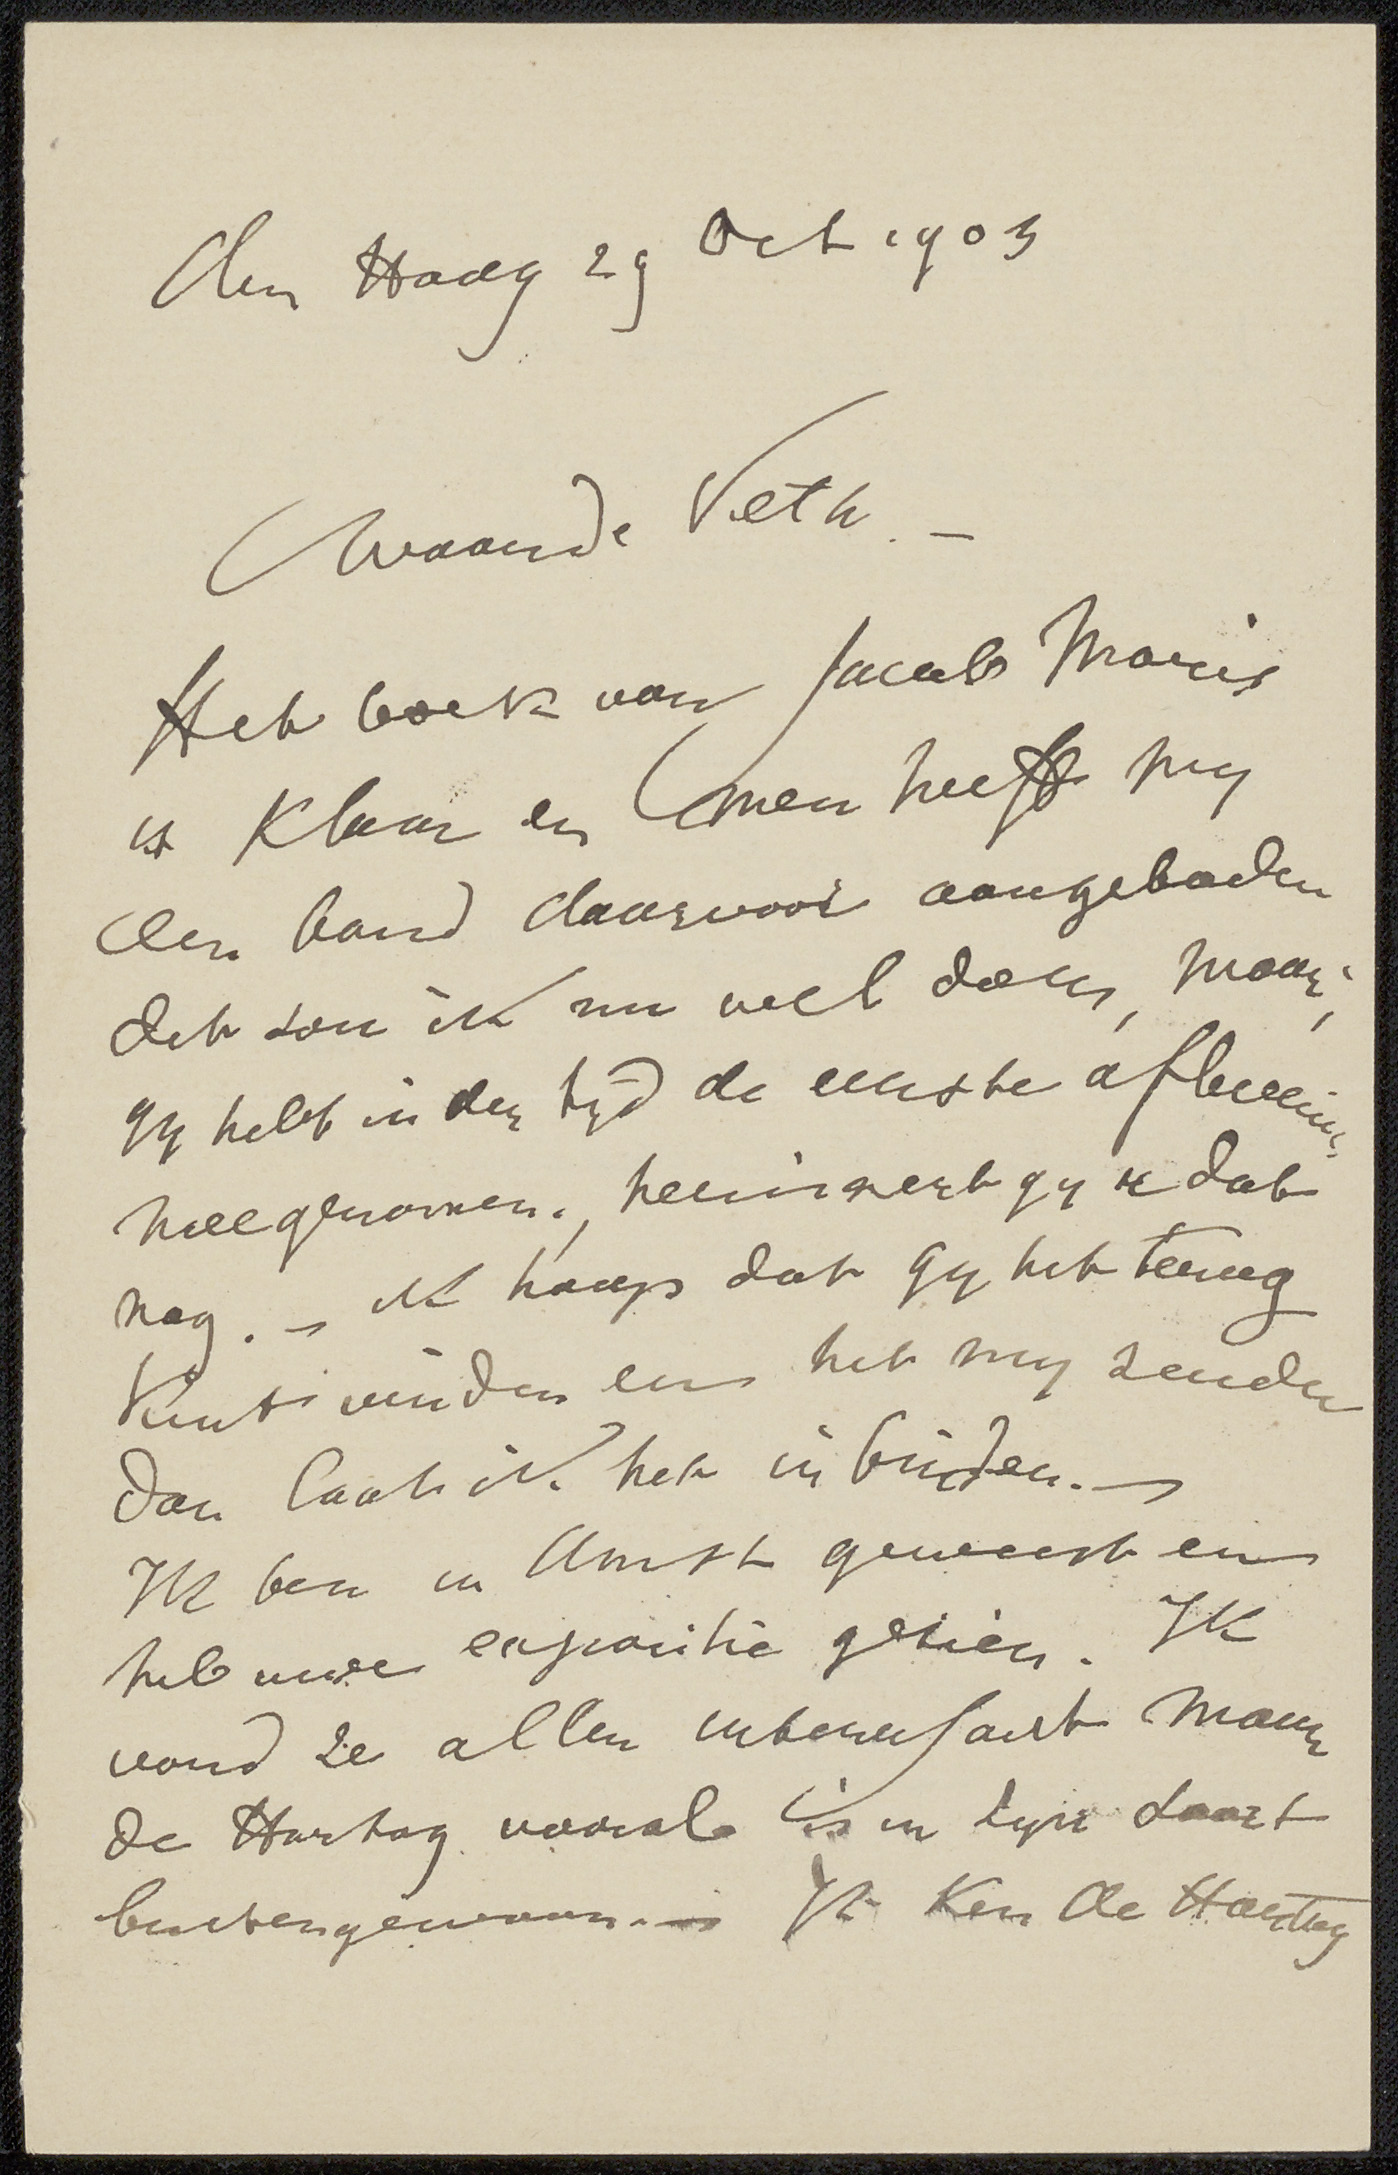 den Haag 29 Oct 1903
Waarde Veth. –
Het boek van Jacob Maris
is klaar en men heeft my
een band daarvoor aangeboden
dat zou ik nu wel doen, maar,
gy hebt in der tyd de eerste aflevering
meegenomen., herinnert gy u dat
nog. – ik hoop dat gy het terug
kunt vinden en het my zenden
dan laat ik het inbinden. –
Ik ben in Amst geweest en
heb uwe expositie gezien. Ik
vond ze allen interessant maar
de Hartog vooral is in zyn soort
buitengewoon. – Ik ken de Hartog